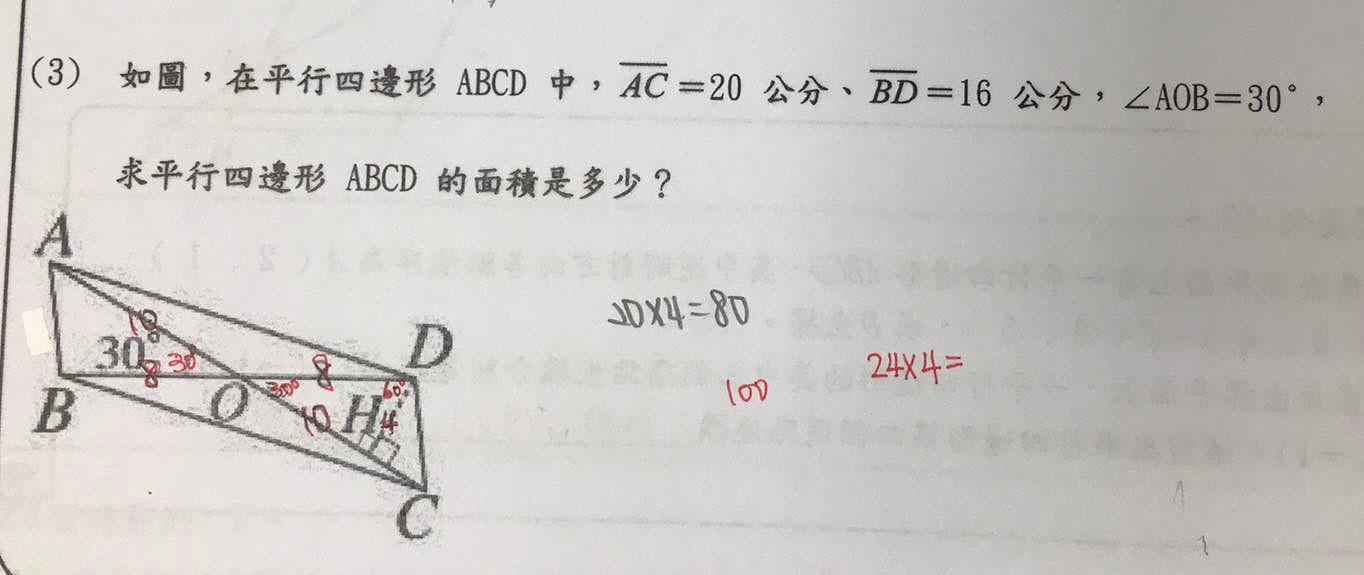 (3) 如圖，在平行四邊形 ABCD 中，AC=20 公分、BD=16 公分，∠AOB=30°，
求平行四邊形 ABCD 的面積是多少？
A
10
30° 8 30° 30° 8 60° D
B O 10 H 4
C
20×4=80
100
24×4=